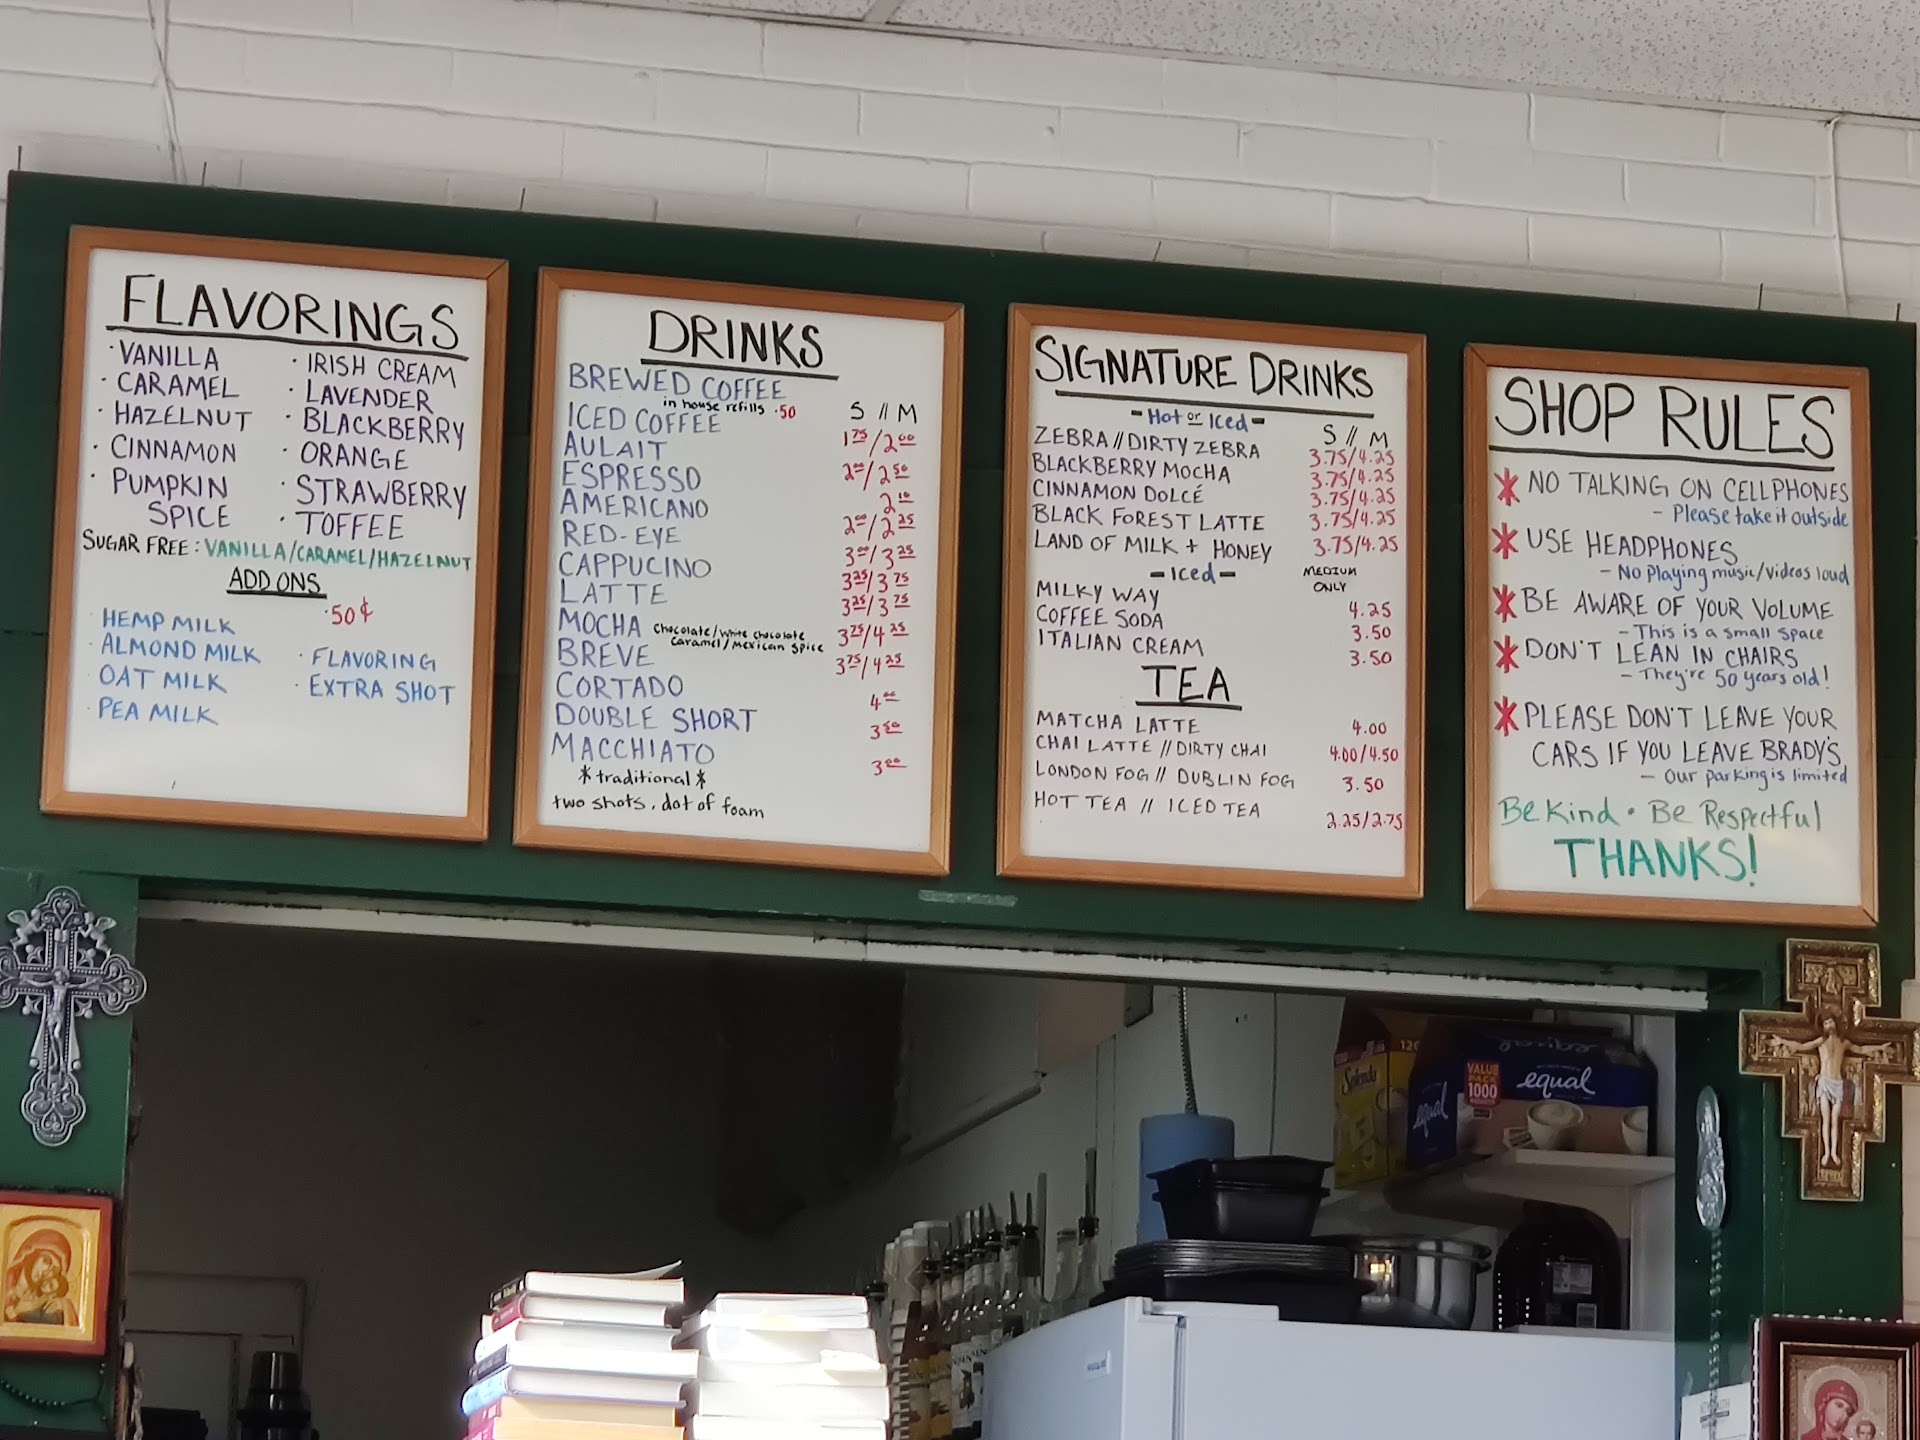 FLAVORINGS
· VANILLA
· CARAMEL
· HAZELNUT
· CINNAMON
· PUMPKIN
SPICE
· IRISH CREAM
· LAVENDER
· BLACKBERRY
· ORANGE
· STRAWBERRY
· TOFFEE
SUGAR FREE: VANILLA/CARAMEL/HAZELNUT
ADD ONS
·50¢
HEMP MILK
ALMOND MILK
OAT MILK
PEA MILK
· FLAVORING
· EXTRA SHOT
DRINKS
BREWED COFFEE
in house refills ·50
S // M
ICED COFFEE
AULAIT
ESPRESSO
AMERICANO
RED-EYE
CAPPUCINO
LATTE
MOCHA chocolate/white chocolate
caramel/mexican spice
BREVE
CORTADO
DOUBLE SHORT
MACCHIATO
*traditional*
two shots, dot of foam
1 75/2 00
2 00/2 50
2 10
2 00/2 25
3 00/3 25
3 25/3 75
3 25/3 75
3 75/4 25
3 75/4 25
4 00
3 50
3 00
SIGNATURE DRINKS
- Hot or Iced -
S // M
ZEBRA // DIRTY ZEBRA 3.75/4.25
BLACKBERRY MOCHA 3.75/4.25
CINNAMON DOLCÉ 3.75/4.25
BLACK FOREST LATTE 3.75/4.25
LAND OF MILK + HONEY 3.75/4.25
- Iced - MEDIUM
ONLY
MILKY WAY 4.25
COFFEE SODA 3.50
ITALIAN CREAM 3.50
TEA
MATCHA LATTE 4.00
CHAI LATTE // DIRTY CHAI 4.00/4.50
LONDON FOG // DUBLIN FOG 3.50
HOT TEA // ICED TEA 2.25/2.75
SHOP RULES
* NO TALKING ON CELLPHONES
- Please take it outside
* USE HEADPHONES
- No playing music/videos loud
* BE AWARE OF YOUR VOLUME
- This is a small space
* DON'T LEAN IN CHAIRS
- They're 50 years old!
* PLEASE DON'T LEAVE YOUR
CARS IF YOU LEAVE BRADY'S
- Our parking is limited
Be Kind · Be Respectful
THANKS!
Splenda
equal
VALUE
PACK
1000
equal